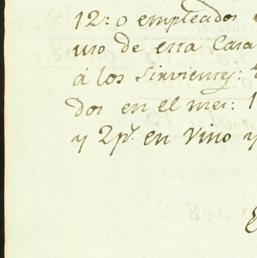 12: o empleados
uso de esta Casa
á los Sirvientes:
dos en el mes: 1
y 2p.s en Vino y